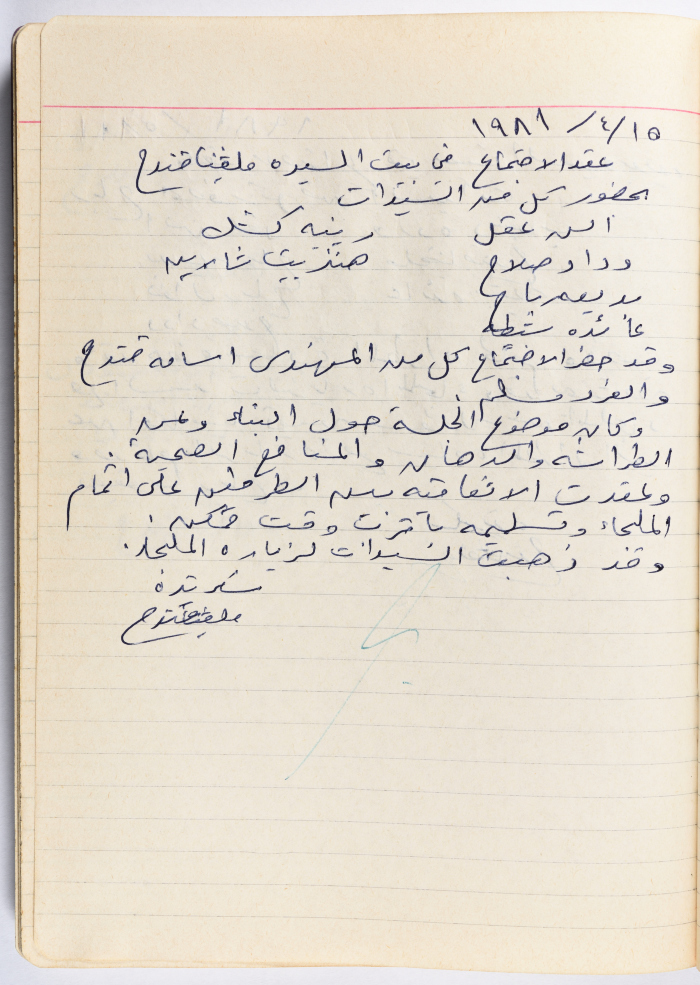 ١٥/٤/١٩٨١
عقد الاجتماع في بيت السيده ملفينا قندح
بحضور كل من السيدات
السن عقل رينيه كشك
وداد صلاح هنرييت شارين
بديعه رباح
عائده شطه
وقد حضر الاجتماع كل من المهندس اسامه قندح
والفرد مسلم
وكان موضوع الجلسة حول البناء وعن
الطراشه والدهان والمنافع الصحية.
وعقدت الاتفاقية بين الطرفين على اتمام
الملجاء وتسليمه باقرب وقت ممكن.
وقد ذهبت السيدات لزياره الملجأ.
سكرتيرة
ملفينا قندح